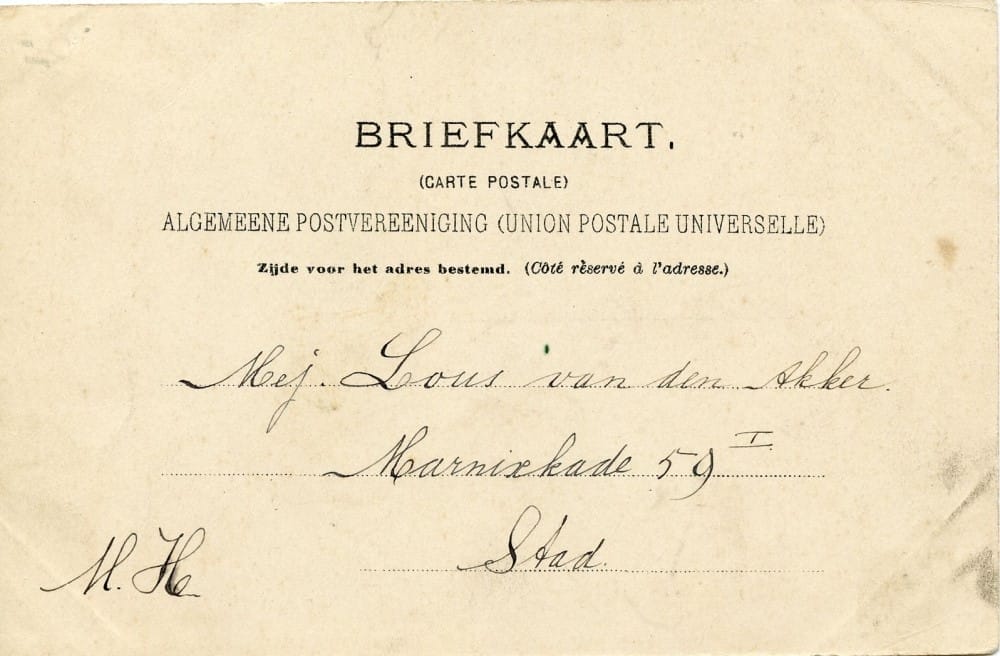 BRIEFKAART.
(CARTE POSTALE)
ALGEMEENE POSTVEREENIGING (UNION POSTALE UNIVERSELLE)
Zijde voor het adres bestemd. (Côté rèservé à l'adresse.)
Mej. Lous van den Akker.
Marnixkade 59 I
Stad.
M. H.